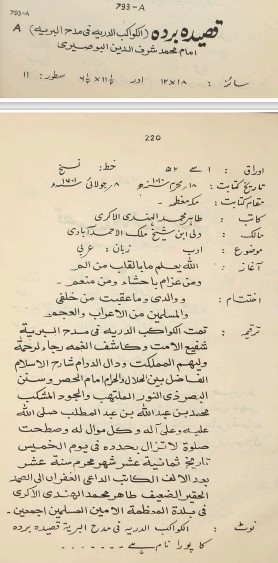 793-A
793-A
قصیدہ بردہ (الکواکب الدریہ فی مدح البریہ) A
امام محمد شرف الدین البوصیری
سائز: ۱۸×۱۲ اور ۱۱½×۶½ سطور: 11
220
اوراق: ۱ سے ۵۲ خط: نسخ
تاریخ کتابت: ۱۸ محرم ۱۰۱۰ھ ۸ جولائی ۱۶۰۱ء
مقام کتابت: مکہ معظمہ
کاتب: طاہر محمد الہندی الاکری
مالک: ولی ابن شیخ ملک الاحمدآبادی
موضوع: ادب زبان: عربی
آغاز: اللہ یعلم ما بالقلب من الم
ومن غرام باحشاء ومن منعم۔
اختتام: والدی وما عقبت من خلقی
والمسلمین من الأعراب والعجم
ترقیمہ: تمت الکواکب الدریہ فی مدح البریة
شفیع الامت وکاشف الغمہ رجاء لرحمة
ولیہم المملکت ودال الدوام شارح الاسلام
الفاضل بین الحلال والحرام امام الحصر وسنن
البصر ذی النور الملتهب والجود المشکب
محمد بن عبد اللہ بن عبد المطلب صلی اللہ
علیہ وعلی آلہ وکل موال لہ وصطحت
صلوة لاتزال بحدده فی یوم الخمیس
تاریخ ثمانیة عشر شهر محرم سنة عشر
بعد الالف الکاتب الداعی الغفران الی الصمد
الحقیر الضعیف طاہر محمد الہندی الاکری
فی بلدة المعظمة الامین المسلمین اجمعین۔
نوٹ: الکواکب الدریہ فی مدح البریة قصیدہ بردہ
کا پورا نام ہے۔۔۔۔۔۔۔